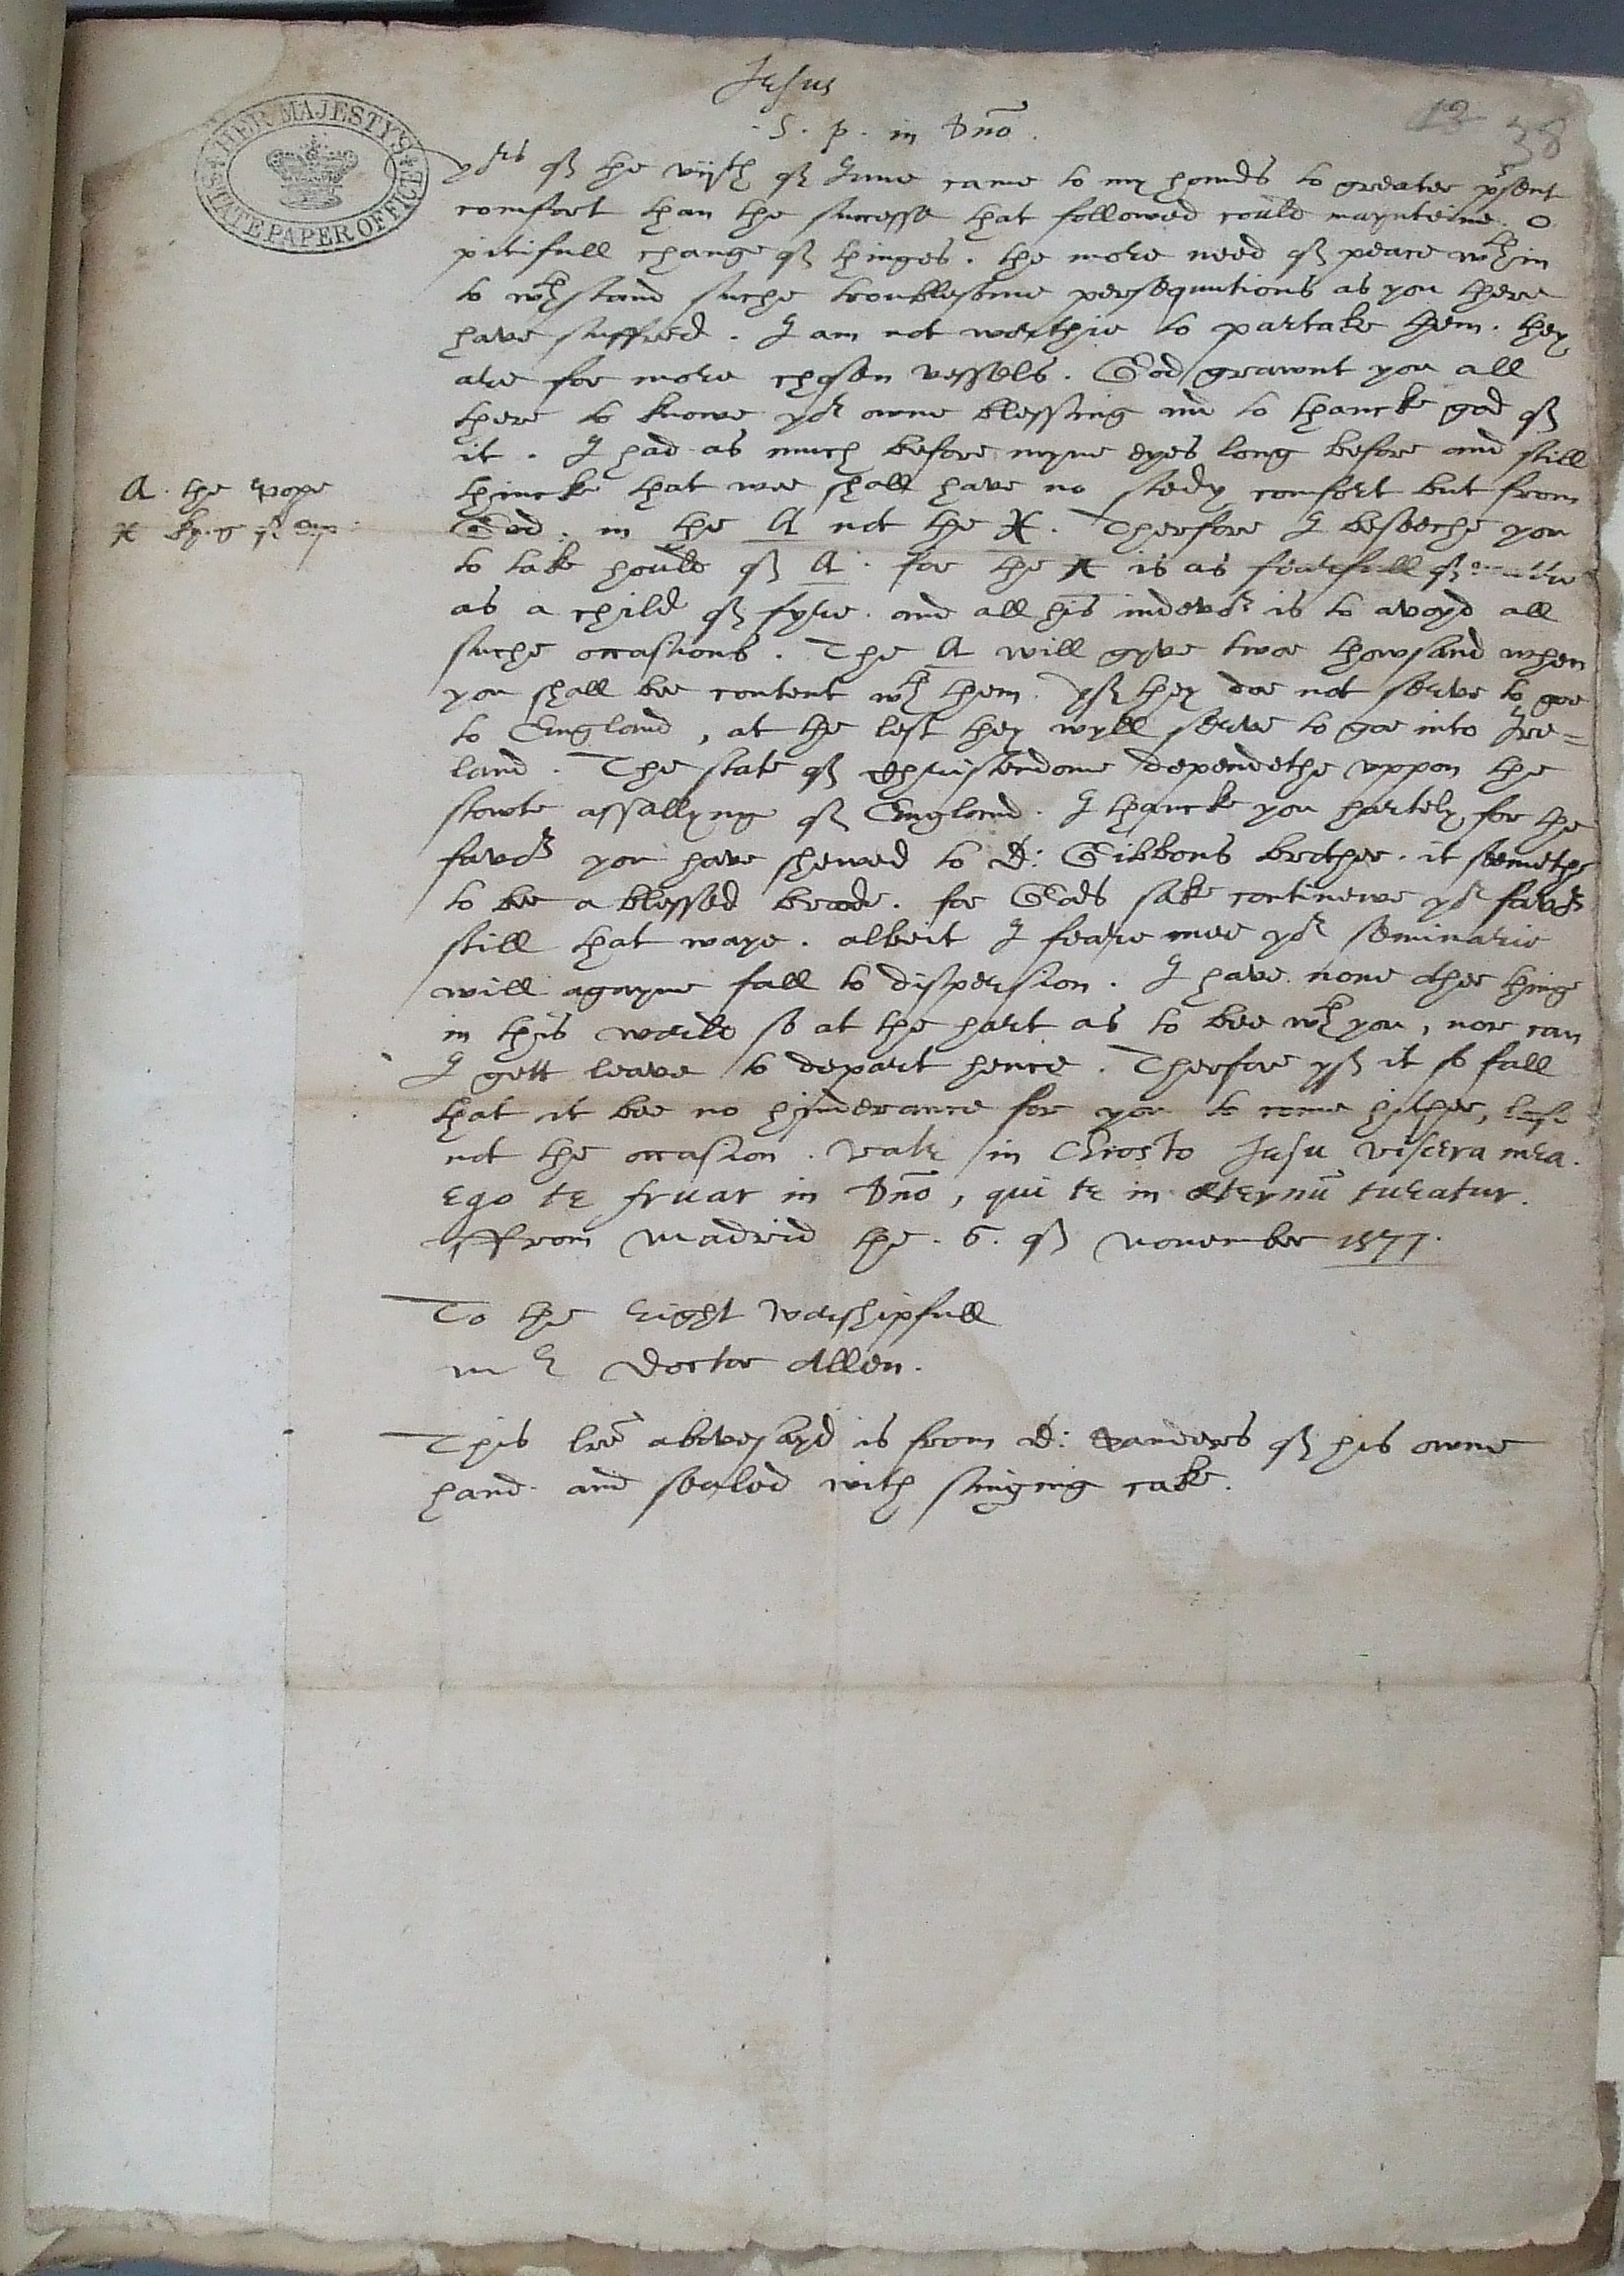 Jesus
13 38
S. p. in Dno.
HER MAJESTY'S STATE PAPER OFFICE
yors of the vijth of June came to my hands to greater psent
comfort than the successe that followed could maynteine. O
pitifull change of thinges. the more need of peace wthin
to wthstand suche troublesome persequutions as you there
have suffred. I am not worthie to partake them. they
are for more chosen vessels. God graunt you all
there to knowe yor owne blessing and to thancke god of
it. I had as much before myne eyes long before and still
thincke that wee shall have no stedy comfort but from
A. the Pope
X
God: in the A not the X. Therfore I beseeche you
to take hould of A: for the X is as fearfull of
as a child of fyre. and all his indevor is to avoyd all
suche occasions. The A will gyve twoe thowsand when
you shall bee content wth them. yf they doe not serve to goe
to England, at the lest they wyll serve to goe into Ire=
land. The state of Christendome dependethe uppon the
stowte assallyng of England. I thancke you hartely for the
favor you have shewed to D: Gibbons brother. it seemethe
to bee a blessed broode. for Gods sake continewe yor favor
still that waye. albeit I feare mee yor seminarie
will agayne fall to dispersion. I have none other thing
in this world so at the hart as to bee wth you, nor can
I gett leave to depart hence. Therfore yf it so fall
that it bee no hinderance for you to come hither, lose
not the occasion. Vale in Christo Jesu viscera mea.
Ego te fruar in Dno, qui te in æternu tueatur.
ffrom Madrid the .6. of November 1577.
To the right worshipfull
mr Doctor Allen.
This lre abovesayd is from D: Sanders of his owne
hand. and sealed with singing cake.